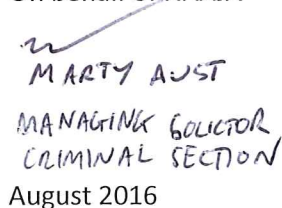 MARTY AUST
MANAGING SOLICITOR
CRIMINAL SECTION
August 2016